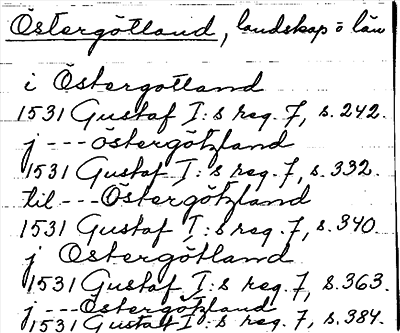 Östergötland, landskap o län
i Östergotland
1531 Gustaf I:s reg. 7, s. 242.
j --- östergötzland
1531 Gustaf I:s reg. 7, s. 332.
til --- Östergötzland
1531 Gustaf I:s reg. 7, s. 340.
j Östergötland
1531 Gustaf I:s reg. 7, s. 363.
j --- Östergötzland
1531 Gustaf I:s reg. 7, s. 384.